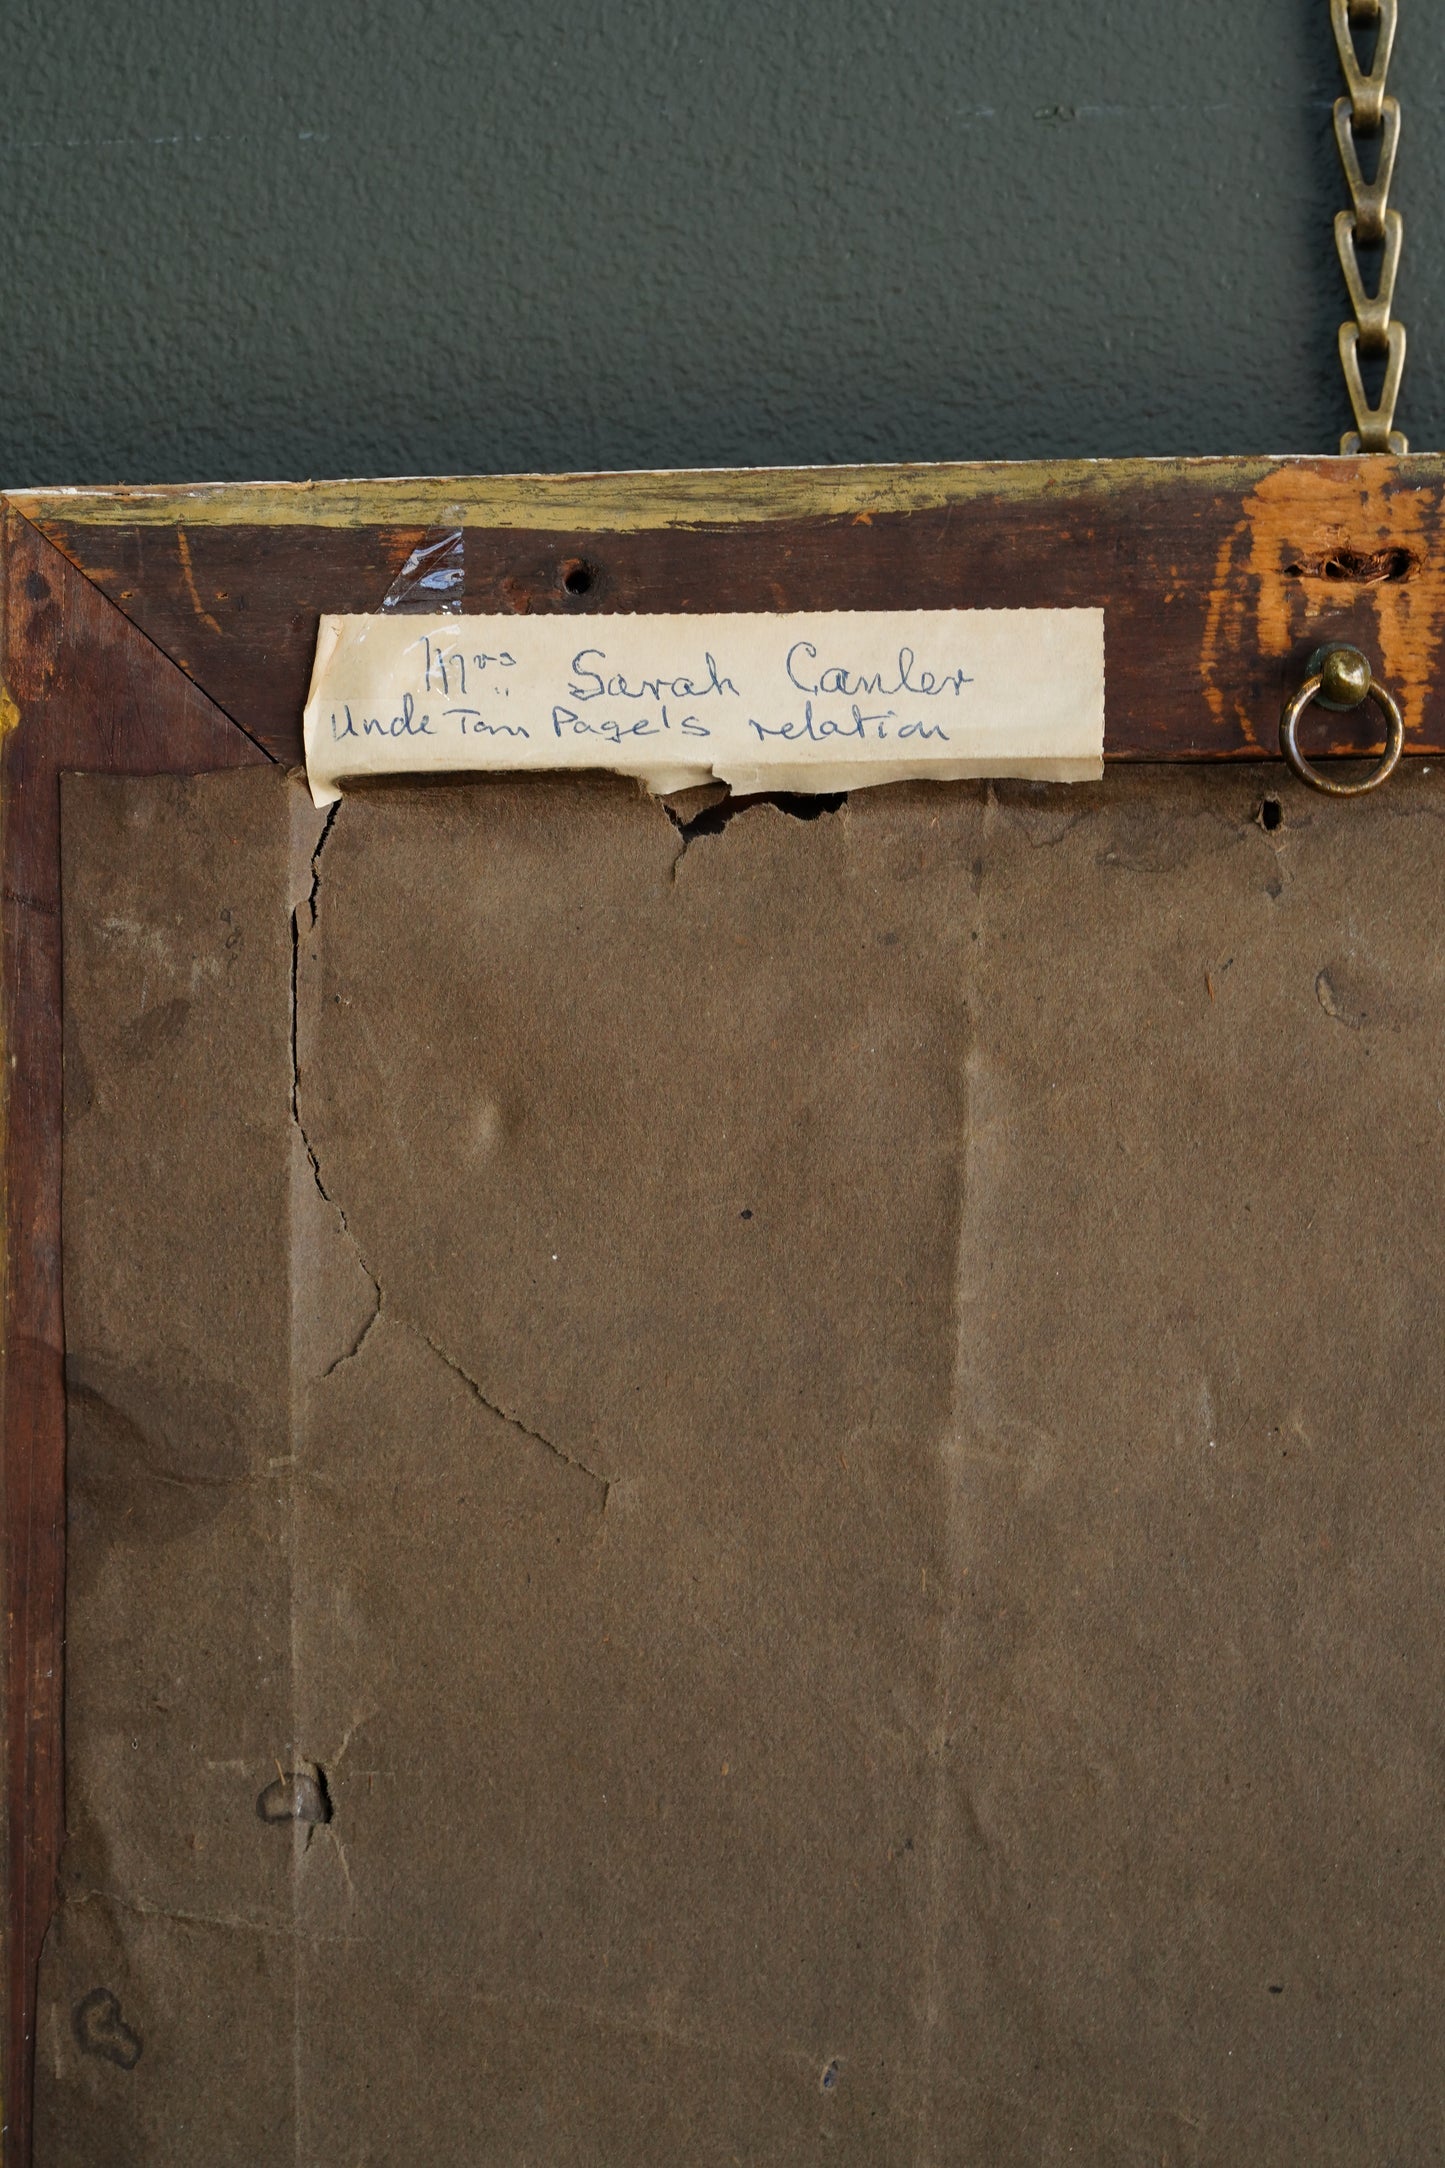 Mrs Sarah Canler
Uncle Tom Page's relation